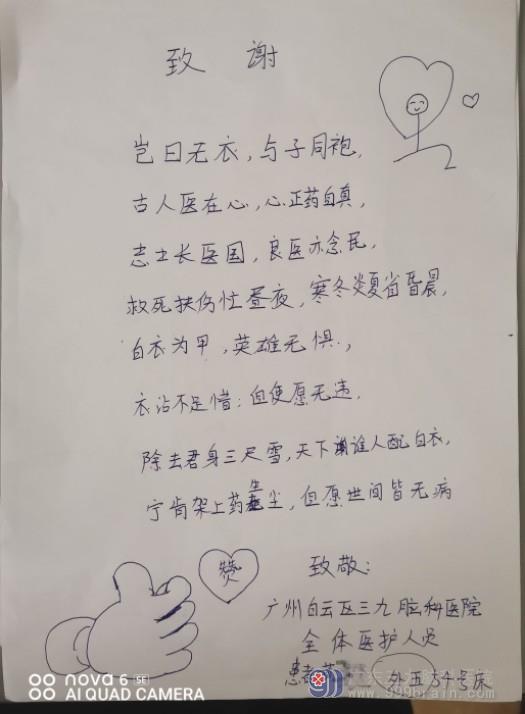 致谢
岂曰无衣,与子同袍,
古人医在心,心正药自真,
志士长医国,良医亦念民,
救死扶伤忙昼夜,寒冬炎夏省昏晨,
白衣为甲,英雄无惧,,
衣沾不足惜;但使愿无违,
除去君身三尺雪,天下谁人配白衣,
宁肯架上药生尘,但愿世间皆无病
赞
致敬:
广州白云区三九脑科医院
全体医护人员
患者
外五54号床
www.999brain.com
nova 6 SE
AI QUAD CAMERA